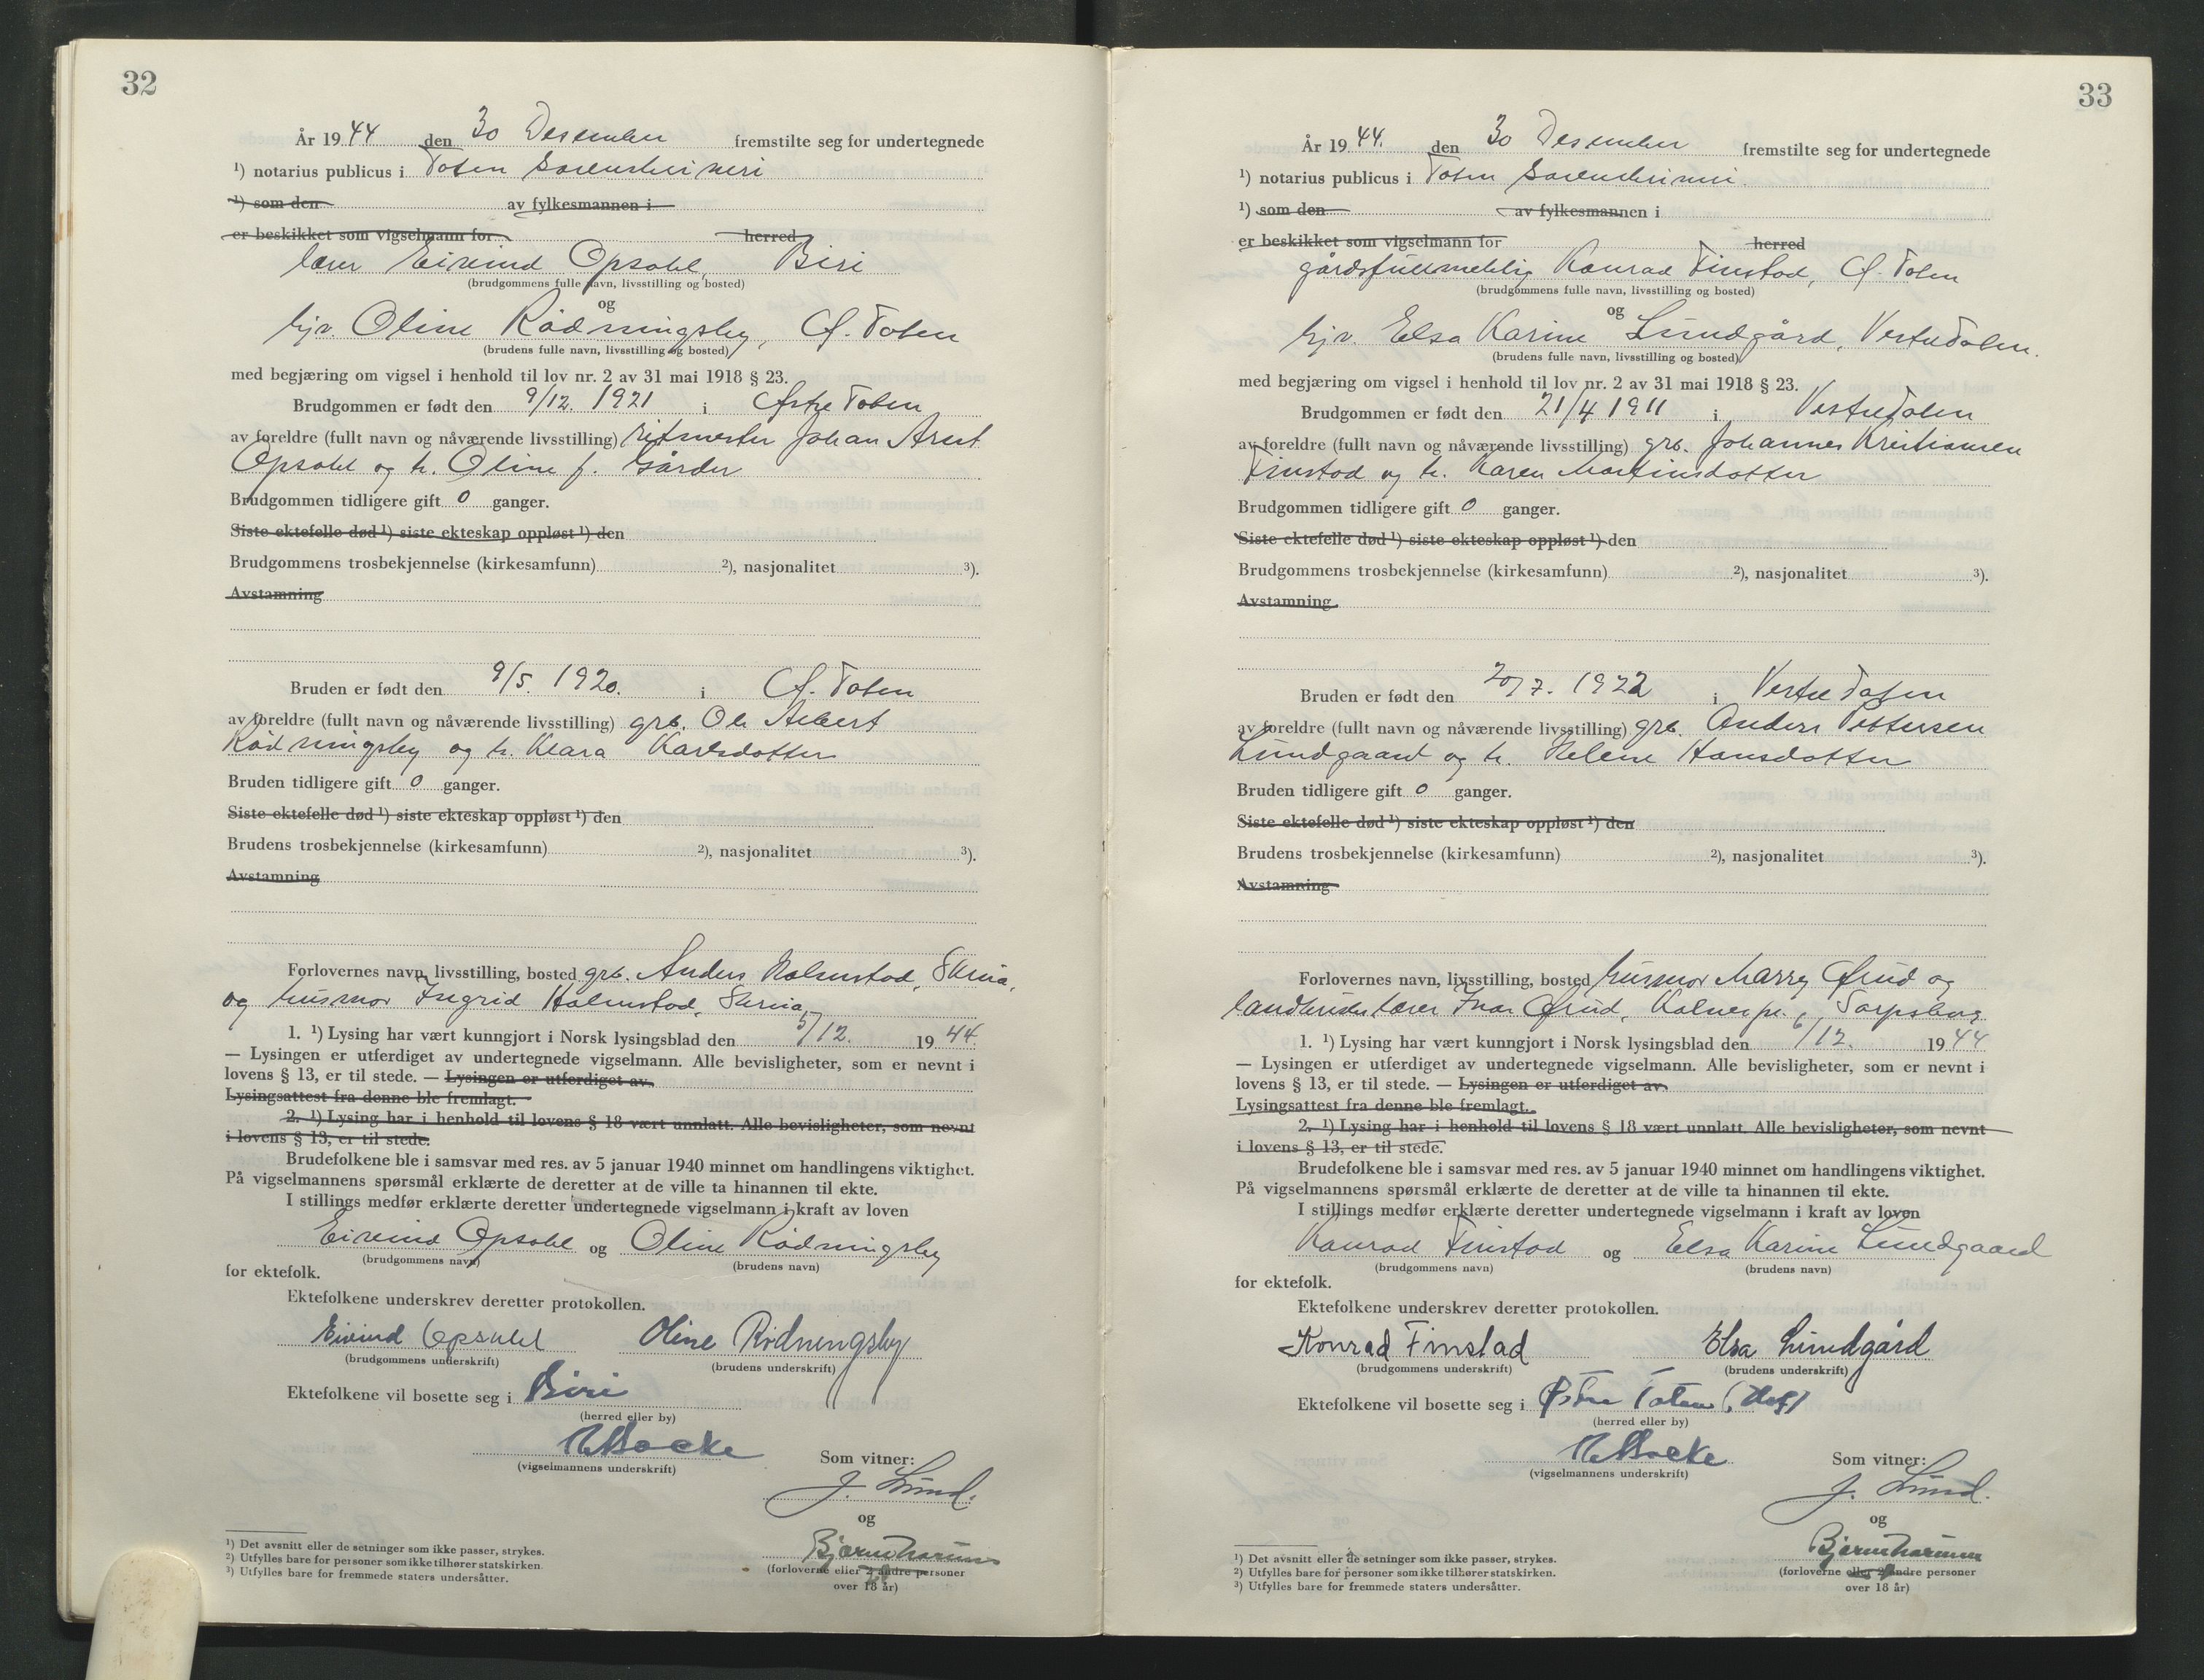 32
År 1944 den 30 Desember fremstilte seg for undertegnede
¹) notarius publicus i Toten Sorenskriveri
¹) som den av fylkesmannen i
er beskikket som vigselmann for herred
lærer Eivind Opsahl, Biri
(brudgommens fulle navn, livsstilling og bosted)
og
hjv. Oline Rødningsby, Ø. Toten
(brudens fulle navn, livsstilling og bosted)
med begjæring om vigsel i henhold til lov nr. 2 av 31 mai 1918 § 23.
Brudgommen er født den 9/12. 1921 i Østre Toten
av foreldre (fullt navn og nåværende livsstilling) ritmester Johan Arnt
Opsahl og h. Oline f. Gårder
Brudgommen tidligere gift 0 ganger.
Siste ektefelle død ¹) siste ekteskap oppløst ¹) den
Brudgommens trosbekjennelse (kirkesamfunn) ²), nasjonalitet ³).
Avstamning
Bruden er født den 9/5. 1920. i Ø. Toten
av foreldre (fullt navn og nåværende livsstilling) grb. Ole Albert
Rødningsby og h. Klara Karlsdotter
Bruden tidligere gift 0 ganger.
Siste ektefelle død ¹) siste ekteskap oppløst ¹) den
Brudens trosbekjennelse (kirkesamfunn) ²), nasjonalitet ³).
Avstamning
Forlovernes navn, livsstilling, bosted grb. Anders Holmstad, Skreia,
og husmor Ingrid Holmstad, Skreia
1. ¹) Lysing har vært kunngjort i Norsk lysingsblad den 5/12. 1944
— Lysingen er utferdiget av undertegnede vigselmann. Alle bevisligheter, som er nevnt i
lovens § 13, er til stede. — Lysingen er utferdiget av
Lysingsattest fra denne ble fremlagt.
2. ¹) Lysing har i henhold til lovens § 18 vært unnlatt. Alle bevisligheter, som nevnt
i lovens § 13, er til stede.
Brudefolkene ble i samsvar med res. av 5 januar 1940 minnet om handlingens viktighet.
På vigselmannens spørsmål erklærte de deretter at de ville ta hinannen til ekte.
I stillings medfør erklærte deretter undertegnede vigselmann i kraft av loven
Eivind Opsahl og Oline Rødningsby
(brudgommens navn) (brudens navn)
for ektefolk.
Ektefolkene underskrev deretter protokollen.
Eivind Opsahl Oline Rødningsby
(brudgommens underskrift) (brudens underskrift)
Ektefolkene vil bosette seg i Biri
(herred eller by)
(vigselmannens underskrift) Som vitner:
J. Lund.
og
(forloverne eller 2 andre personer
over 18 år)
¹) Det avsnitt eller de setninger som ikke passer, strykes.
²) Utfylles bare for personer som ikke tilhører statskirken.
³) Utfylles bare for fremmede staters undersåtter.
33
År 1944. den 30 Desember fremstilte seg for undertegnede
¹) notarius publicus i Toten Sorenskriveri.
¹) som den av fylkesmannen i
er beskikket som vigselmann for herred
gårdsfullmektig Konrad Finstad, Ø. Toten
(brudgommens fulle navn, livsstilling og bosted)
og
hjv. Elsa Karine Lundgård, Vestre Toten.
(brudens fulle navn, livsstilling og bosted)
med begjæring om vigsel i henhold til lov nr. 2 av 31 mai 1918 § 23.
Brudgommen er født den 21/4 1911 i Vestre Toten
av foreldre (fullt navn og nåværende livsstilling) grb. Johannes Kristiansen
Finstad og h. Karen Martinsdotter
Brudgommen tidligere gift 0 ganger.
Siste ektefelle død ¹) siste ekteskap oppløst ¹) den
Brudgommens trosbekjennelse (kirkesamfunn) ²), nasjonalitet ³).
Avstamning
Bruden er født den 20/7. 1922 i Vestre Toten
av foreldre (fullt navn og nåværende livsstilling) grb. Anders Pettersen
Lundgaard og h. Helene Hansdotter
Bruden tidligere gift 0 ganger.
Siste ektefelle død ¹) siste ekteskap oppløst ¹) den
Brudens trosbekjennelse (kirkesamfunn) ²), nasjonalitet ³).
Avstamning
Forlovernes navn, livsstilling, bosted husmor Marry Øfrud og
landbrukslærer Ivar Øfrud, Kalnes pr. Sarpsborg
1. ¹) Lysing har vært kunngjort i Norsk lysingsblad den 6/12. 1944
— Lysingen er utferdiget av undertegnede vigselmann. Alle bevisligheter, som er nevnt i
lovens § 13, er til stede. — Lysingen er utferdiget av
Lysingsattest fra denne ble fremlagt.
2. ¹) Lysing har i henhold til lovens § 18 vært unnlatt. Alle bevisligheter, som nevnt
i lovens § 13, er til stede.
Brudefolkene ble i samsvar med res. av 5 januar 1940 minnet om handlingens viktighet.
På vigselmannens spørsmål erklærte de deretter at de ville ta hinannen til ekte.
I stillings medfør erklærte deretter undertegnede vigselmann i kraft av loven
Konrad Finstad og Elsa Karine Lundgaard
(brudgommens navn) (brudens navn)
for ektefolk.
Ektefolkene underskrev deretter protokollen.
Konrad Finstad Elsa Lundgård
(brudgommens underskrift) (brudens underskrift)
Ektefolkene vil bosette seg i Østre Toten (Hoff)
(herred eller by)
(vigselmannens underskrift) Som vitner:
J. Lund.
og
(forloverne eller 2 andre personer
over 18 år)
¹) Det avsnitt eller de setninger som ikke passer, strykes.
²) Utfylles bare for personer som ikke tilhører statskirken.
³) Utfylles bare for fremmede staters undersåtter.